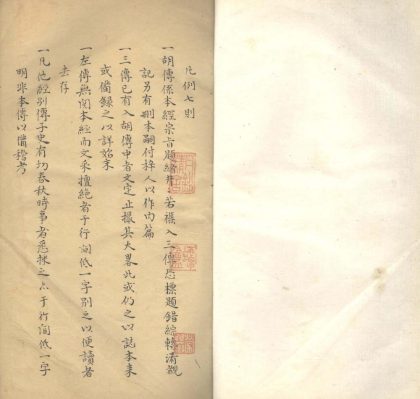 凡例七則
一胡傳係本經宗旨順緒井若欄入三傳恐標題錯綜轉淆觀
記另有刪本嗣付梓人以作內篇
一三傳已有入胡傳中者文定止撮其大畧此或仍之以誌本來
或備錄之以詳始末
一左傳無関本經而文采擅絕者于行間低一字別之以便讀者
去存
一凡他經別傳子史有切春秋時事者悉採之亦于行間低一字
明非本傳以備稽考